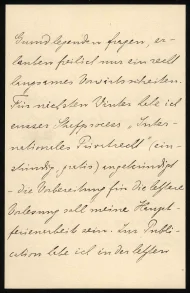 Grundlegenden fragen, er-
lauben freilich nur ein recht
langsames Vorwärtsschreiten.
Für nächsten Winter habe ich
ausser Strafprocess, Inter-
nationales Privatrecht (ein-
stündig, gratis) angekündigt
- die Vorbereitung für die letztere
Vorlesung soll meine Haupt-
ferienarbeit sein. Zur Publi-
cation habe ich in der letzten